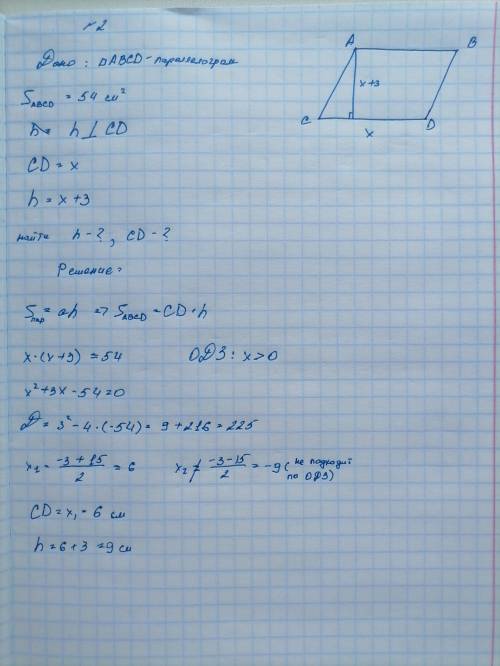 №2
Дано: ▱ABCD - параллелограм
A B
C D
x+3
x
S ABCD = 54 см²
h ⊥ CD
CD = x
h = x+3
найти h - ?, CD - ?
Решение:
Sпар = ah => S ABCD = CD · h
x·(x+3) = 54 ОДЗ: x>0
x²+3x-54=0
D = 3²-4·(-54) = 9+216 = 225
x₁ = (-3+15)/2 = 6 x₂ ≠ (-3-15)/2 = -9 (не подходит по ОДЗ)
CD = x₁ = 6 см
h = 6+3 = 9 см